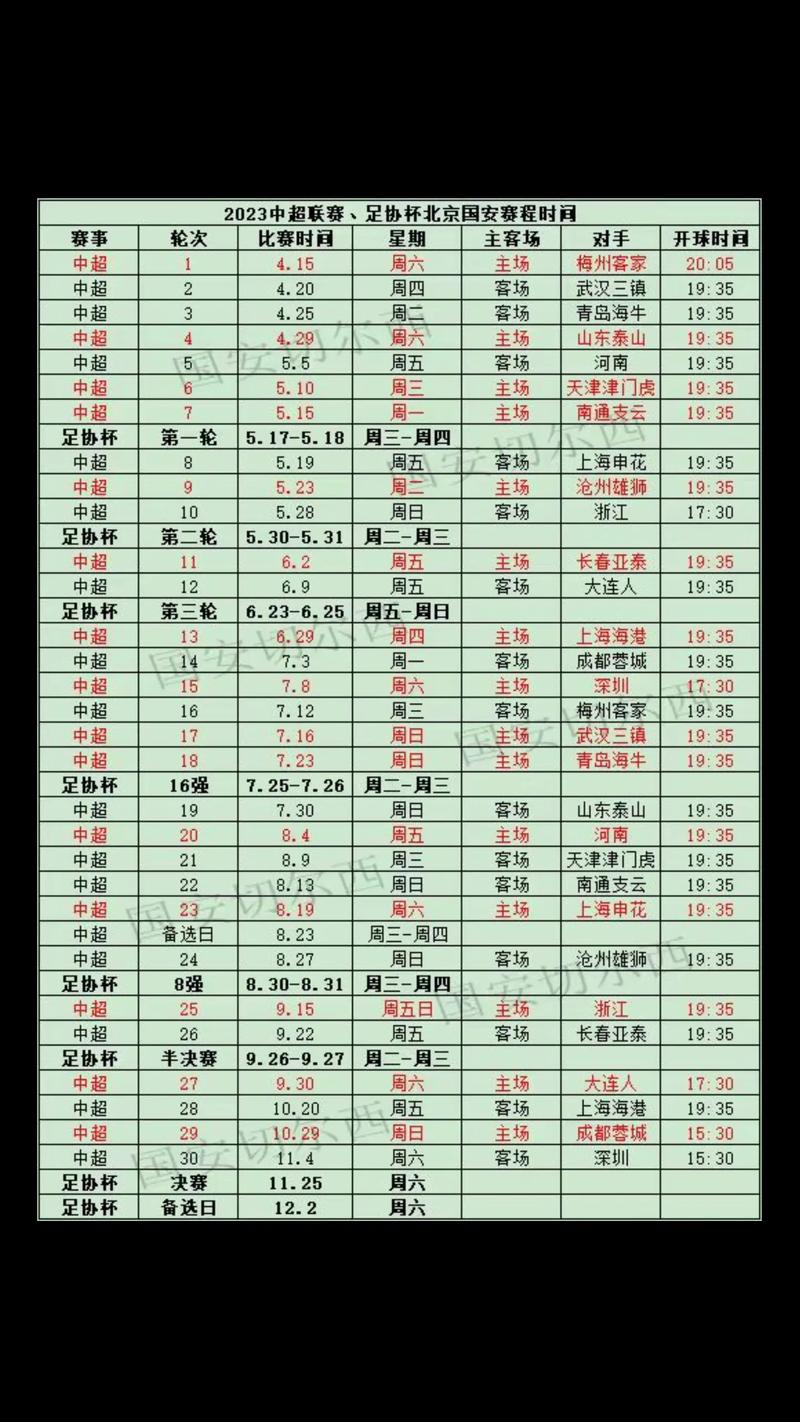 2023中超联赛、足协杯北京国安赛程时间
赛事 轮次 比赛时间 星期 主客场 对手 开球时间
中超 1 4.15 周六 主场 梅州客家 20:05
中超 2 4.20 周四 客场 武汉三镇 19:35
中超 3 4.25 周二 客场 青岛海牛 19:35
中超 4 4.29 周六 主场 山东泰山 19:35
中超 5 5.5 周五 客场 河南 19:35
中超 6 5.10 周三 主场 天津津门虎 19:35
中超 7 5.15 周一 主场 南通支云 19:35
足协杯 第一轮 5.17-5.18 周三-周四
中超 8 5.19 周五 客场 上海申花 19:35
中超 9 5.23 周二 主场 沧州雄狮 19:35
中超 10 5.28 周日 客场 浙江 17:30
足协杯 第二轮 5.30-5.31 周二-周三
中超 11 6.2 周五 主场 长春亚泰 19:35
中超 12 6.9 周五 客场 大连人 19:35
足协杯 第三轮 6.23-6.25 周五-周日
中超 13 6.29 周四 主场 上海海港 19:35
中超 14 7.3 周一 客场 成都蓉城 19:35
中超 15 7.8 周六 主场 深圳 17:30
中超 16 7.12 周三 客场 梅州客家 19:35
中超 17 7.16 周日 主场 武汉三镇 19:35
中超 18 7.23 周日 主场 青岛海牛 19:35
足协杯 16强 7.25-7.26 周二-周三
中超 19 7.30 周日 客场 山东泰山 19:35
中超 20 8.4 周五 主场 河南 19:35
中超 21 8.9 周三 客场 天津津门虎 19:35
中超 22 8.13 周日 客场 南通支云 19:35
中超 23 8.19 周六 主场 上海申花 19:35
中超 备选日 8.23 周三-周四
中超 24 8.27 周日 客场 沧州雄狮 19:35
足协杯 8强 8.30-8.31 周三-周四
中超 25 9.15 周五日 主场 浙江 19:35
中超 26 9.22 周五 客场 长春亚泰 19:35
足协杯 半决赛 9.26-9.27 周二-周三
中超 27 9.30 周六 主场 大连人 17:30
中超 28 10.20 周五 客场 上海海港 19:35
中超 29 10.29 周日 主场 成都蓉城 15:30
中超 30 11.4 周六 客场 深圳 15:30
足协杯 决赛 11.25 周六
足协杯 备选日 12.2 周六
国安切尔西
国安切尔西
国安切尔西
国安切尔西
国安切尔西
国安切尔西
国安切尔西